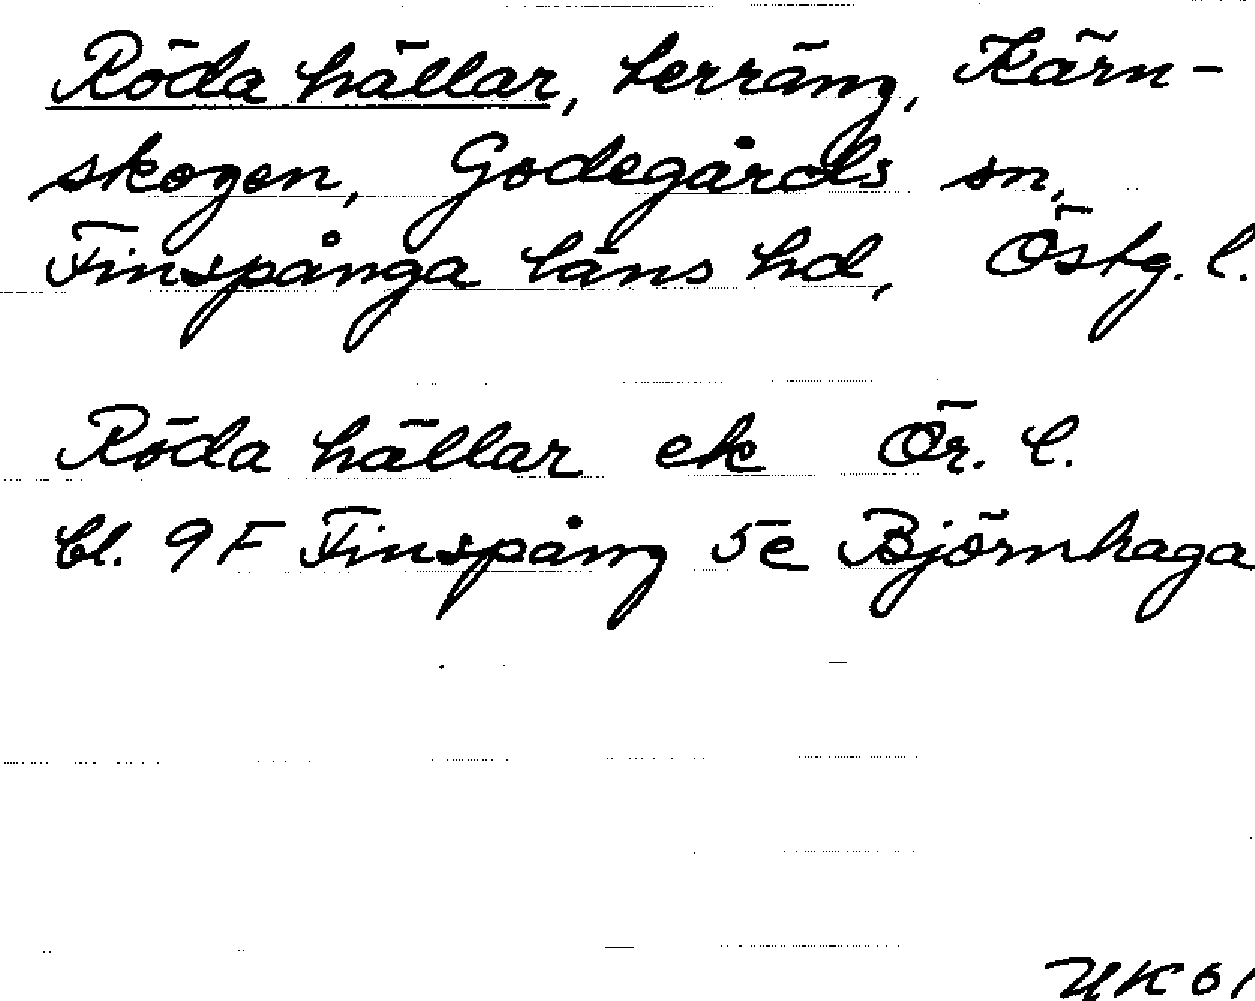 Röda hällar, terräng, Kärn-
skogen, Godegårds sn,
Finspånga läns hd, Östg. l.
Röda hällar ek Ör. l.
bl. 9F Finspång 5e Björnhaga